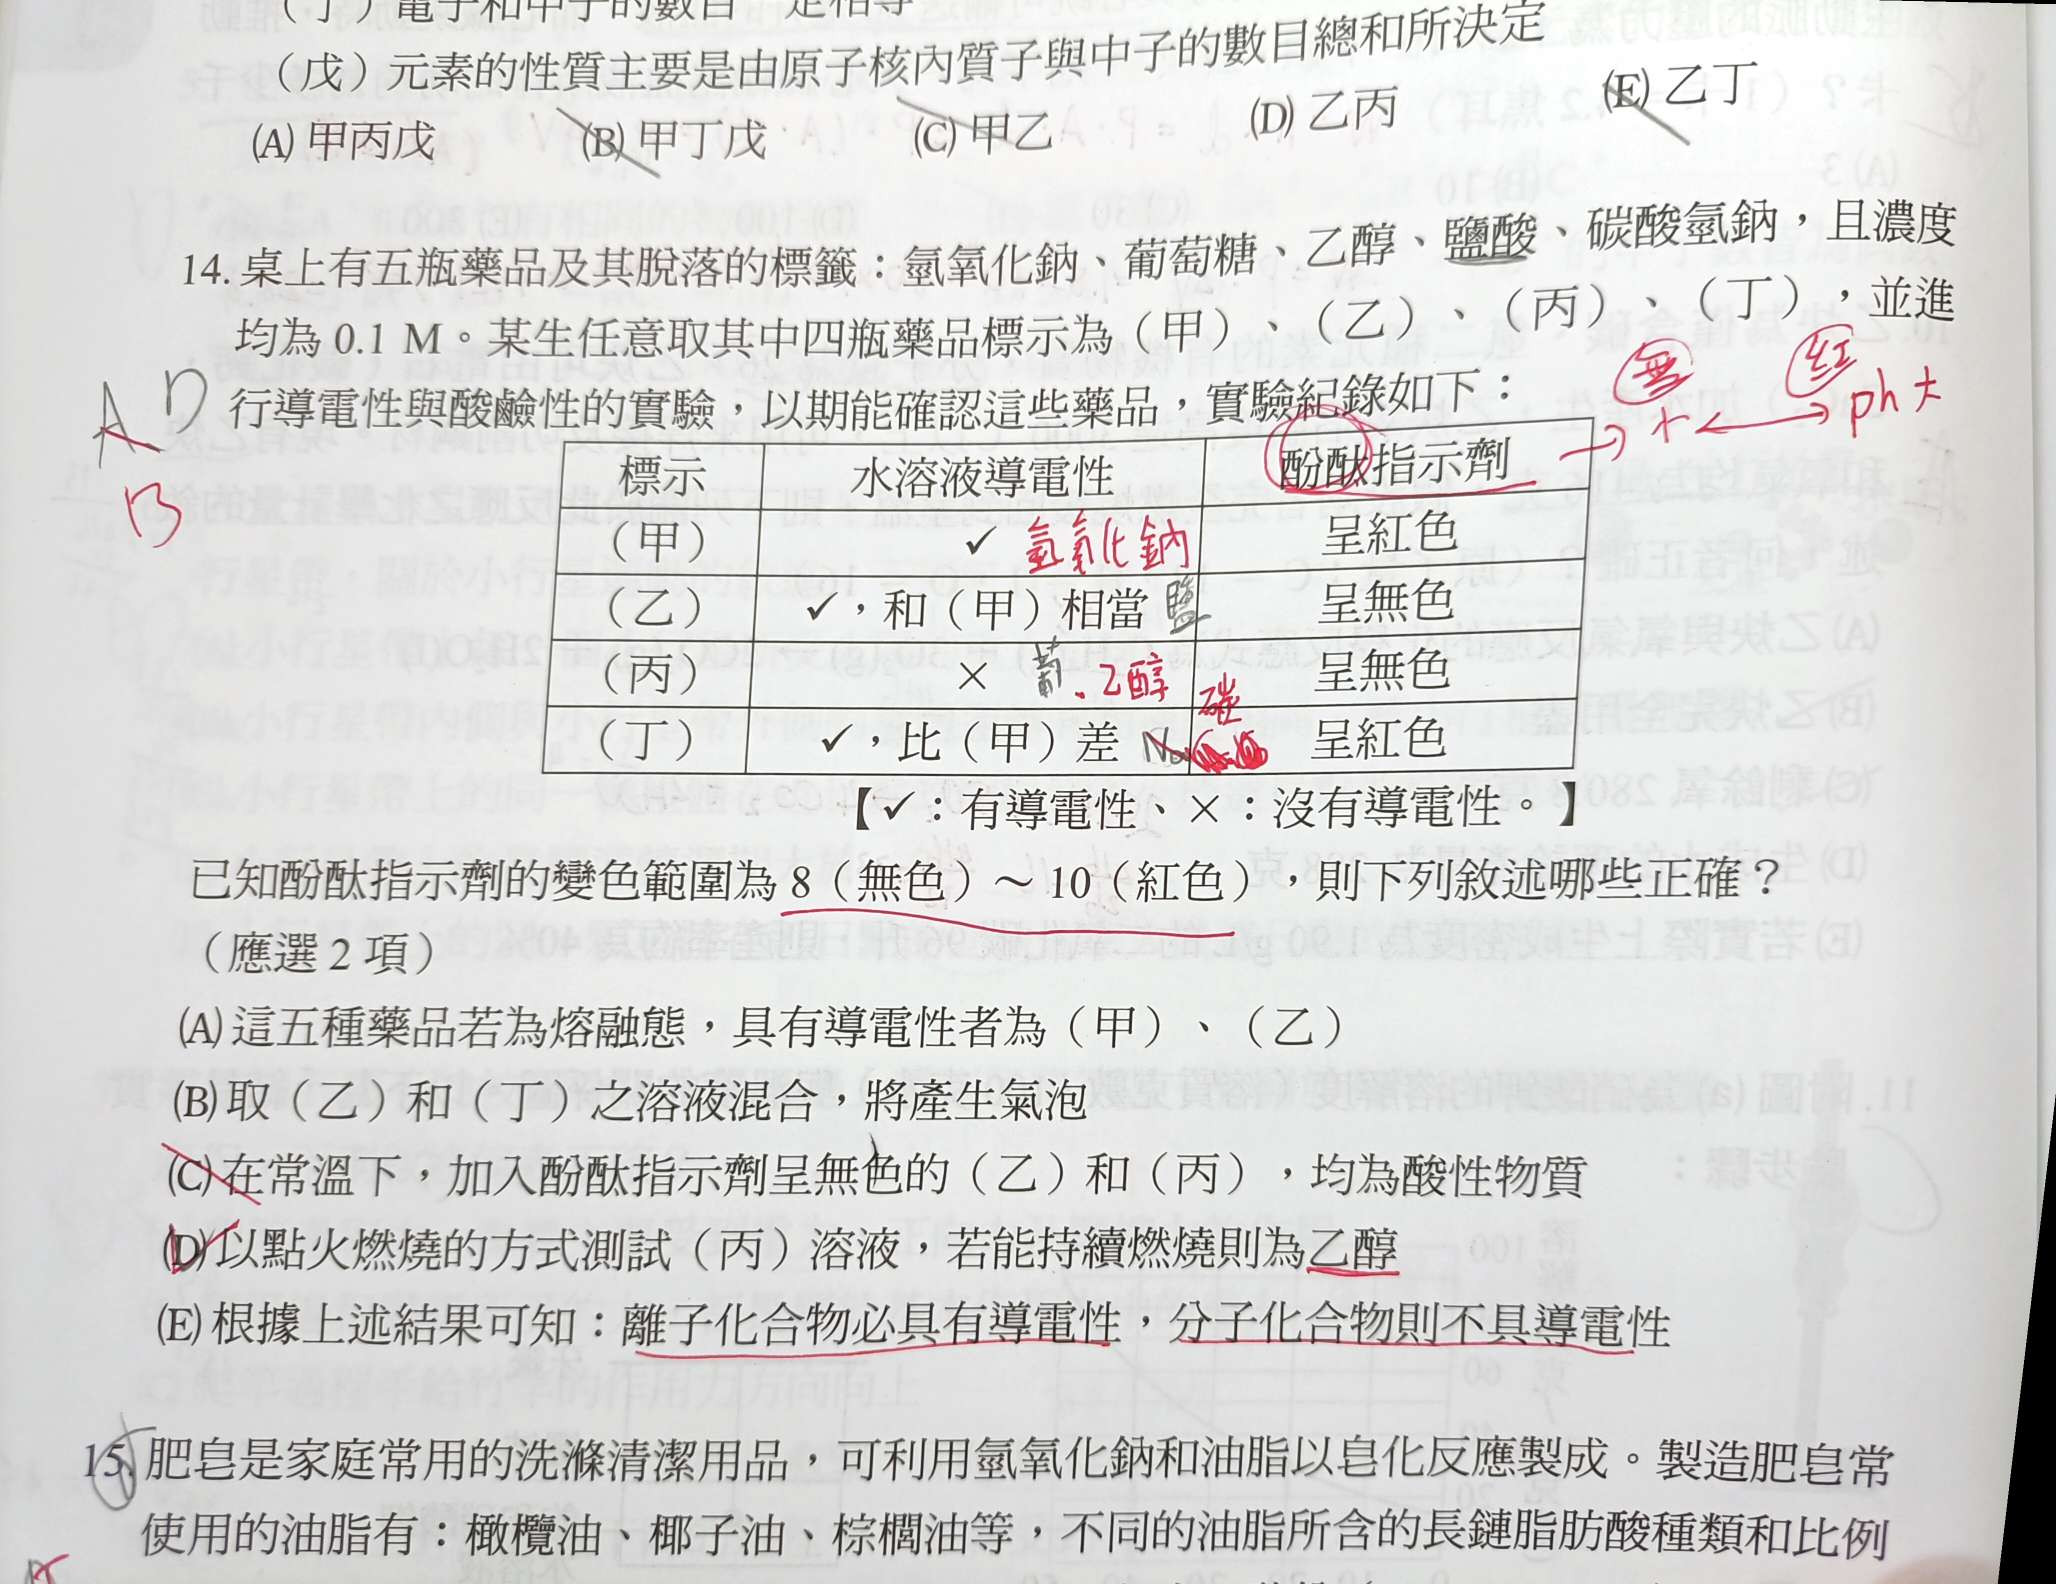 （丁）電子和中子的數目一定相等
（戊）元素的性質主要是由原子核內質子與中子的數目總和所決定
(A) 甲丙戊 (B) 甲丁戊 (C) 甲乙 (D) 乙丙 (E) 乙丁
14. 桌上有五瓶藥品及其脫落的標籤：氫氧化鈉、葡萄糖、乙醇、鹽酸、碳酸氫鈉，且濃度
均為 0.1 M。某生任意取其中四瓶藥品標示為（甲）、（乙）、（丙）、（丁），並進
行導電性與酸鹼性的實驗，以期能確認這些藥品，實驗紀錄如下：
無 紅
ph大
A D
B
標示 水溶液導電性 酚酞指示劑
（甲） ✓ 氫氧化鈉 呈紅色
（乙） ✓，和（甲）相當 鹽 呈無色
（丙） × 葡.乙醇 呈無色
（丁） ✓，比（甲）差 碳 呈紅色
【✓：有導電性、×：沒有導電性。】
已知酚酞指示劑的變色範圍為 8（無色）～ 10（紅色），則下列敘述哪些正確？
（應選 2 項）
(A) 這五種藥品若為熔融態，具有導電性者為（甲）、（乙）
(B) 取（乙）和（丁）之溶液混合，將產生氣泡
(C) 在常溫下，加入酚酞指示劑呈無色的（乙）和（丙），均為酸性物質
(D) 以點火燃燒的方式測試（丙）溶液，若能持續燃燒則為乙醇
(E) 根據上述結果可知：離子化合物必具有導電性，分子化合物則不具導電性
15. 肥皂是家庭常用的洗滌清潔用品，可利用氫氧化鈉和油脂以皂化反應製成。製造肥皂常
使用的油脂有：橄欖油、椰子油、棕櫚油等，不同的油脂所含的長鏈脂肪酸種類和比例